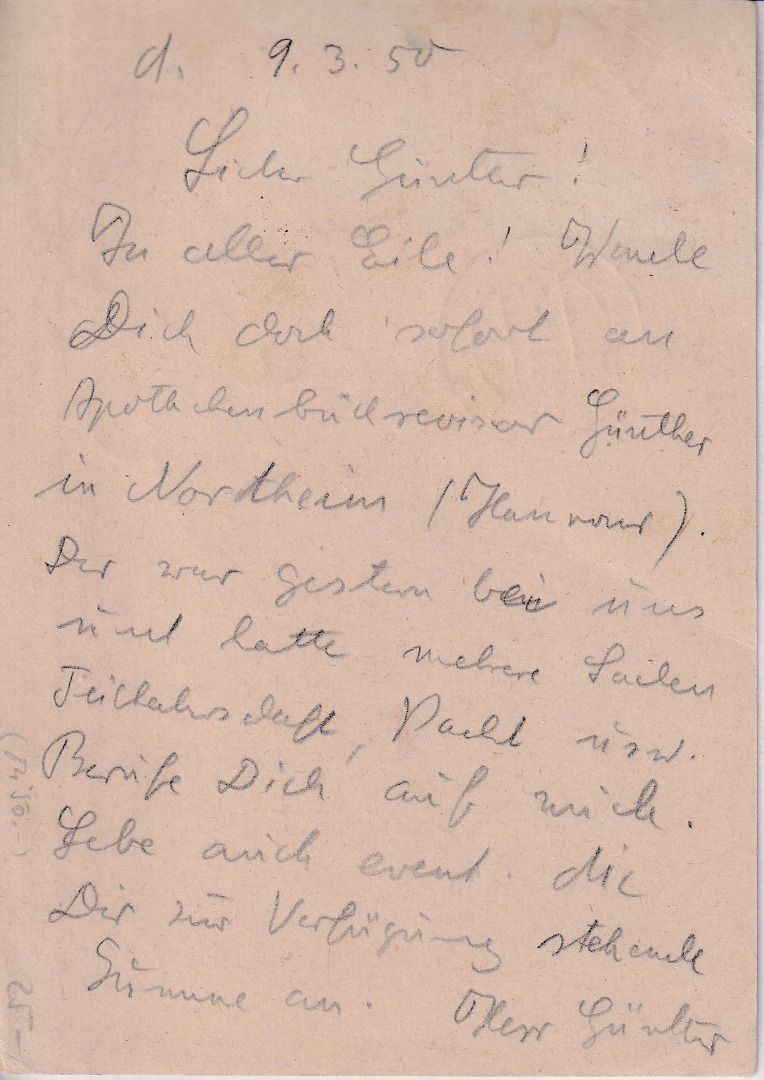 d. 9.3.50
Lieber Günter!
In aller Eile! Wende
Dich doch sofort an
Apothekenbuchrevisor Günther
in Northeim (Hannover).
Der war gestern bei uns
und hatte mehrere Sachen
Teilhaberschaft, Pacht usw.
Berufe Dich auf mich.
Gebe auch event. die
Dir zur Verfügung stehende
Summe an. Herr Günther
25.-